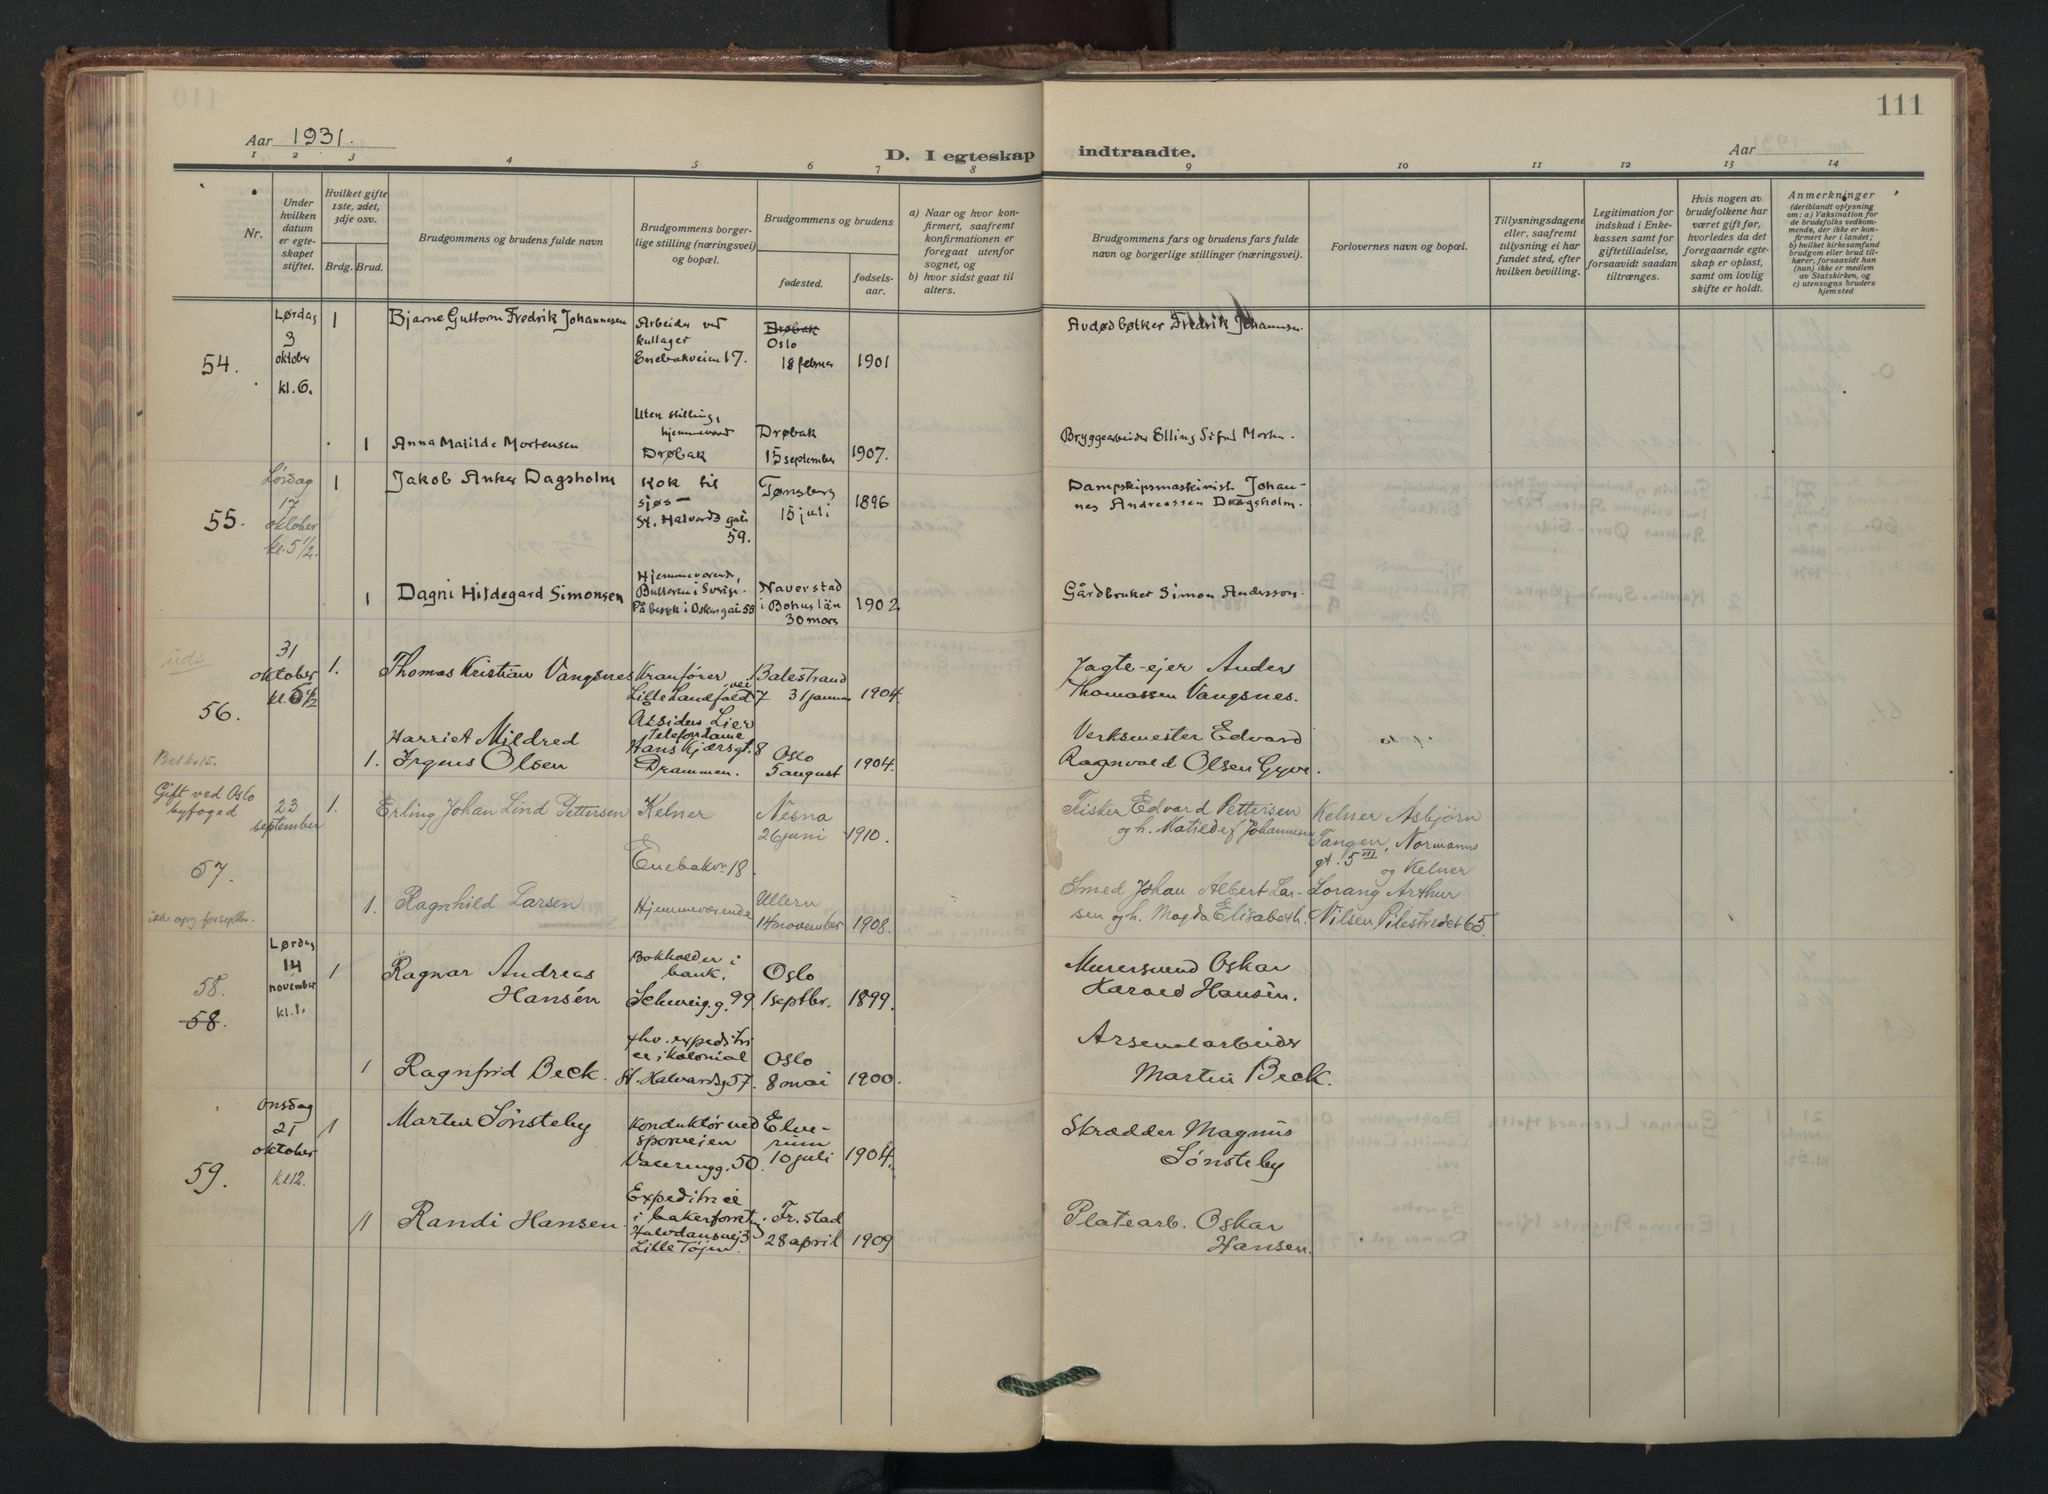 111
Aar 1931.
D. I egteskap indtraadte.
Aar
1 2 3 4 5 6 7 8 9 10 11 12 13 14
Nr.
Under hvilken datum er egteskapet stiftet.
Hvilket gifte 1ste, 2det, 3dje osv.
Brdg. Brud.
Brudgommens og brudens fulde navn
Brudgommens borgerlige stilling (næringsvei) og bopæl.
Brudgommens og brudens
fødested.
fødselsaar.
a) Naar og hvor konfirmert, saafremt konfirmationen er foregaat utenfor sognet, og
b) hvor sidst gaat til alters.
Brudgommens fars og brudens fars fulde navn og borgerlige stillinger (næringsvei).
Forlovernes navn og bopæl.
Tillysningsdagene eller, saafremt tillysning ei har fundet sted, efter hvilken bevilling.
Legitimation for indskud i Enkekassen samt for giftetilladelse, forsaavidt saadan tiltrænges.
Hvis nogen av brudefolkene har været gift før, hvorledes da det foregaaende egteskap er opløst, samt om lovlig skifte er holdt.
Anmerkninger
(deriblandt oplysning om: a) Vaksination for de brudefolks vedkommende, der ikke er konfirmert her i landet; b) hvilket kirkesamfund brudgom eller brud tilhører, forsaavidt han (hun) ikke er medlem av Statskirken, og c) utensogns bruders hjemsted
54.
Lørdag 3 oktober kl. 6.
1
Bjarne Guttorm Fredrik Johannesen
Arbeider ved kullager Enebakveien 17.
Drøbak Oslo 18 februar
1901
Avdød bøtker Fredrik Johannesen.
1
Anna Matilde Mortensen
Uten stilling, hjemmeværende Drøbak
Drøbak 15 september
1907.
Bryggearbeider Elling
55.
Lørdag 17 oktober kl. 5 1/2.
1
Jakob Anker Dagsholm
Kok til sjøs - St. Halvards gate 59.
Tønsberg 15 juli
1896
Dampskipsmaskinist Johannes Andreassen Dragsholm.
1
Dagni Hildegard Simonsen
Hjemmeværende, Bulleren i Sverige. På besøk i Oskersgate 55
Naverstad i Bohuslän 30 mars
1902
Gårdbruker Simon Andersson.
uds
56.
31 oktober kl. 6 1/2
1.
Thomas Kristian Vangsnes
Kranfører, Lille Landfaldvei 7 Assiden Lier
Balestrand 31 januar
1904.
Jagte-ejer Anders Thomassen Vangsnes.
1.
Harriet Mildred Irgens Olsen
Telefondame Hans Kjærsgt. 8 Drammen.
Oslo 5 august
1904.
Verksmester Edvard Ragnvald Olsen Gyve.
Bet kr 15.
Gift ved Oslo byfoged
57.
23 september
1.
Erling Johan Lind Pettersen
Kelner Enebakv. 18
Nesna 26 juni
1910.
Fisker Edvard Pettersen og h. Matilde f Johannesen
Kelner Asbjørn Tangen, Normanns gt. 5 III og Kelner Lorang Arthur Nilsen Pilestredet 65.
ikke opg. for septbr.
1.
Ragnhild Larsen
Hjemmeværende
Ullern 14 november
1908.
Smed Johan Albert Larsen og h. Magda Elisabeth.
58.
58.
Lørdag 14 november kl. 1.
1
Ragnar Andreas Hansén
Bokholder i bank. Schweig. g. 99
Oslo 1 septbr.
1899.
Murersvend Oskar Harald Hansén.
1
Ragnfrid Beck.
fhv. expeditrice i kolonial St. Halvardsg 57.
Oslo 8 mai
1900.
Arsenalarbeider Martin Beck.
59.
Onsdag 21 oktober kl 12.
1
Martin Sønsteby
Konduktør ved sporveien Vaalerengg. 50.
Elverum 10 juli
1904.
Skrædder Magnus Sønsteby
1
Randi Hansen.
Expeditrice i bakerforretn. Halvdansvei 3 Lille Tøjen.
Fr. stad 28 april
1909
Platearb. Oskar Hansen.